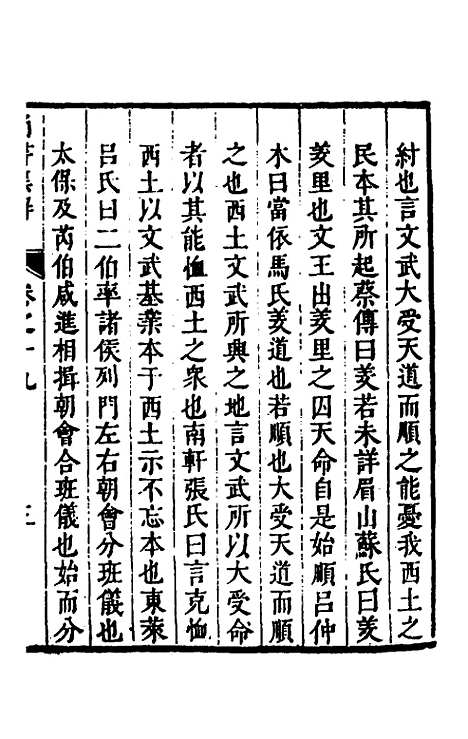 紂也言文武大受天道而順之能憂我西土之
民本其所起蔡傳曰羑若未詳眉山蘇氏曰羑
羑里也文王出羑里之囚天命自是始順呂仲
木曰當依馬氏羑道也若順也大受天道而順
之也西土文武所興之地言文武所以大受命
者以其能恤西土之衆也南軒張氏曰言克恤
西土以文武基業本于西土示不忘本也東萊
呂氏曰二伯率諸侯列門左右朝會分班儀也
太保及芮伯咸進相揖朝會合班儀也始而分
卷之十九
三